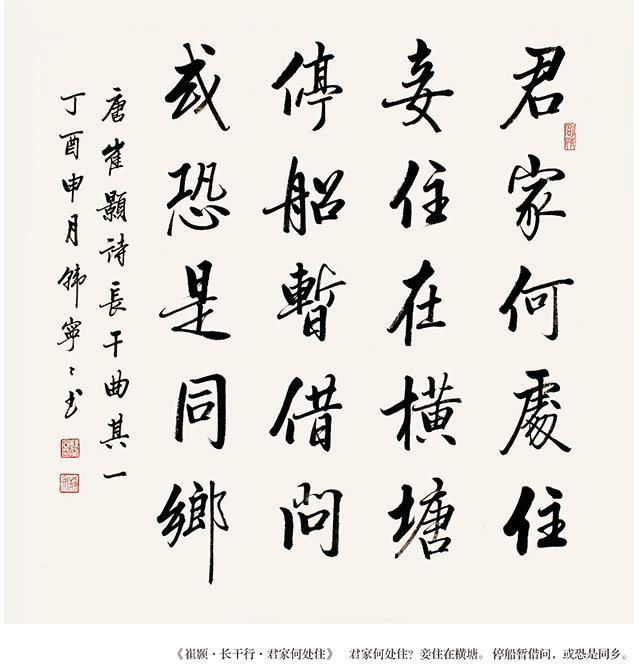 君家何處住
妾住在橫塘
停船暫借問
或恐是同鄉
唐崔顥詩長干曲其一
丁酉申月韓寧〻书
《崔颢·长干行·君家何处住》 君家何处住？妾住在横塘。停船暂借问，或恐是同乡。